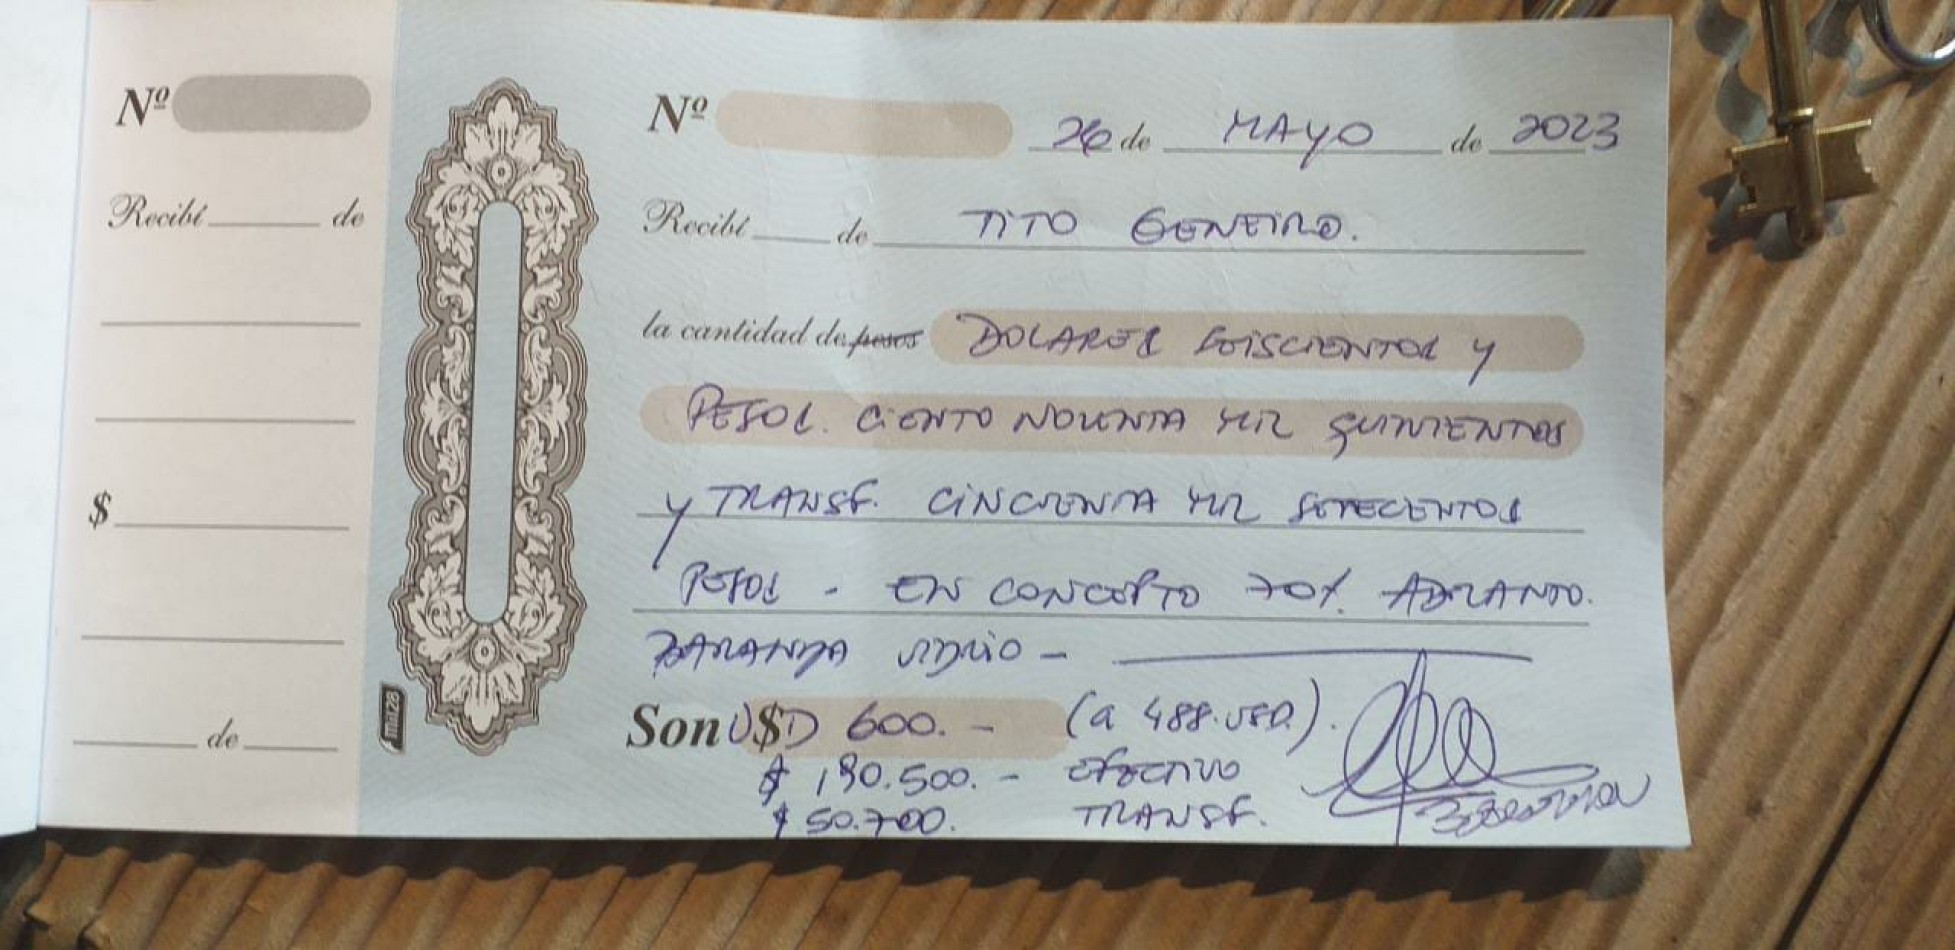 Nº
Recibí ______ de
$
______ de ______
Nº
26 de MAYO de 2023
Recibí ____ de TITO GENEIRO.
la cantidad de pesos DOLARES SEISCIENTOS Y
PESOS. CIENTO NOVENTA MIL QUINIENTOS
Y TRANSF. CINCUENTA MIL SETECIENTOS
PESOS - EN CONCEPTO 70%. ADELANTO.
BARANDA VIDRIO -
Son U$D 600. - (a 488.USD.).
$ 190.500. - EFECTIVO
$ 50.700. TRANSF.